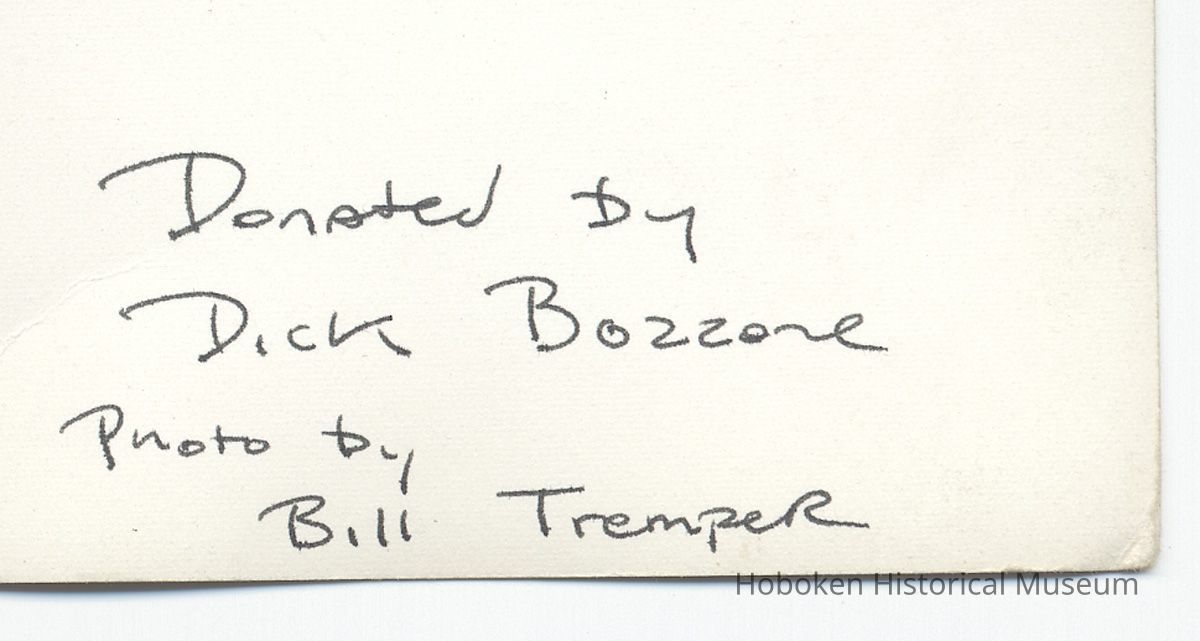 Donated by
Dick Bozzone
Photo by
Bill Tremper
Hoboken Historical Museum